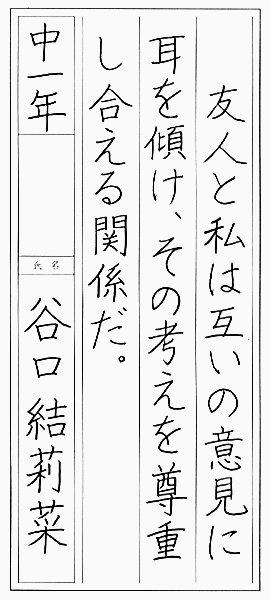 友人と私は互いの意見に
耳を傾け、その考えを尊重
し合える関係だ。
中一年
氏名
谷口結莉菜